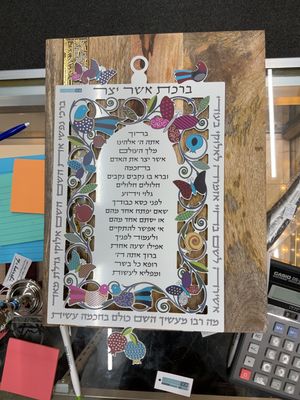 ברכת אשר יצר
ברוך
אתה ה׳ אלהינו
מלך העולם
אשר יצר את האדם
בחכמה
וברא בו נקבים נקבים
חלולים חלולים
גלוי וידוע
לפני כסא כבודך
שאם יפתח אחד מהם
או יסתם אחד מהם
אי אפשר להתקיים
ולעמוד לפניך
אפילו שעה אחת
ברוך אתה ה׳
רופא כל בשר
ומפליא לעשות
ברכי נפשי את השם השם אלוקי גדלת מאד
מה רבו מעשיך השם כולם בחכמה עשית
CASIO